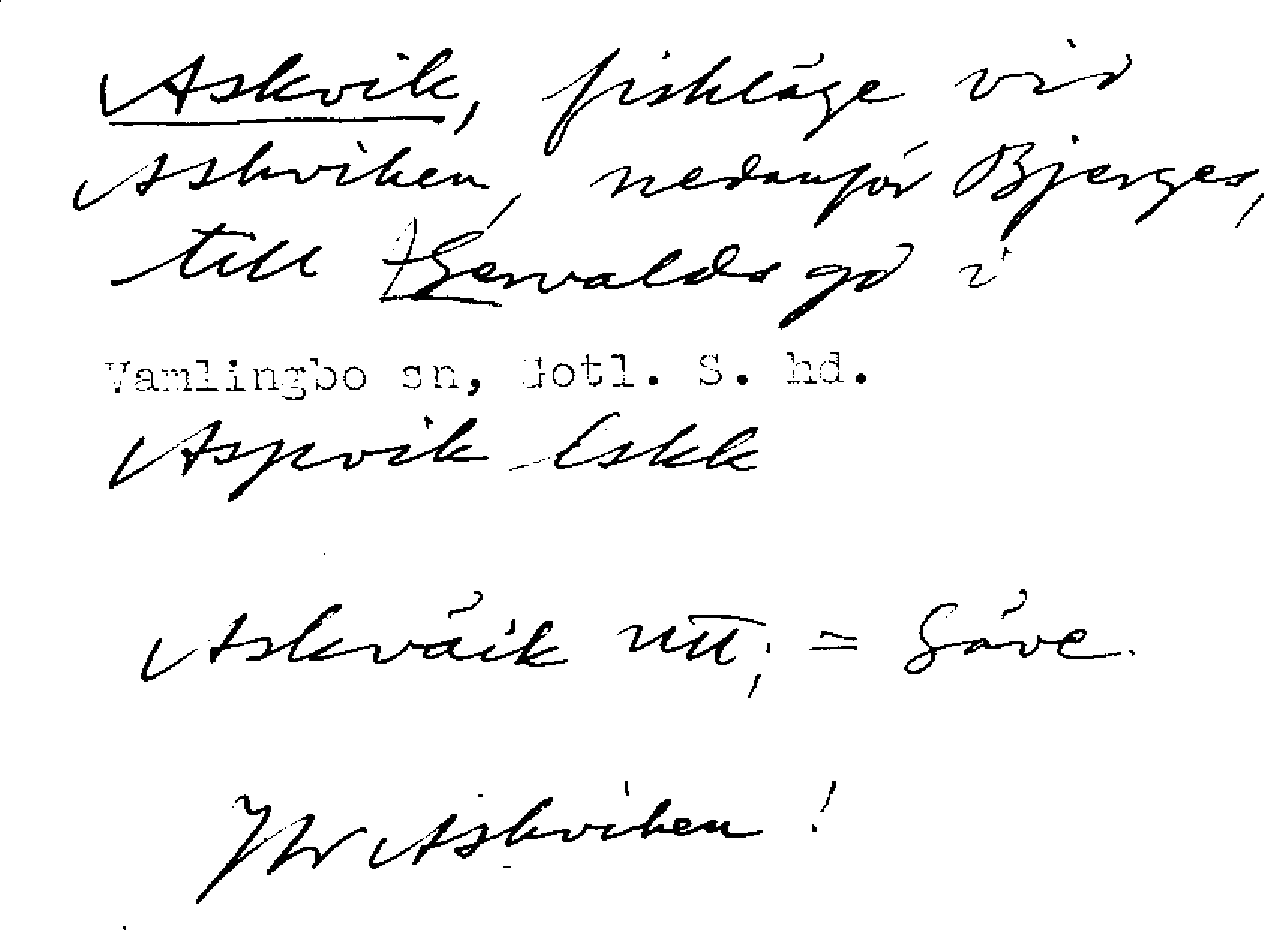 Askvik, fiskläge vid
Askviken, nedanför Bjerges,
till Gervalds gd i
Vamlingbo sn, Gotl. S. hd.
Aspvik Eskk
Askväik utt; = Säve.
Jfr Askviken!